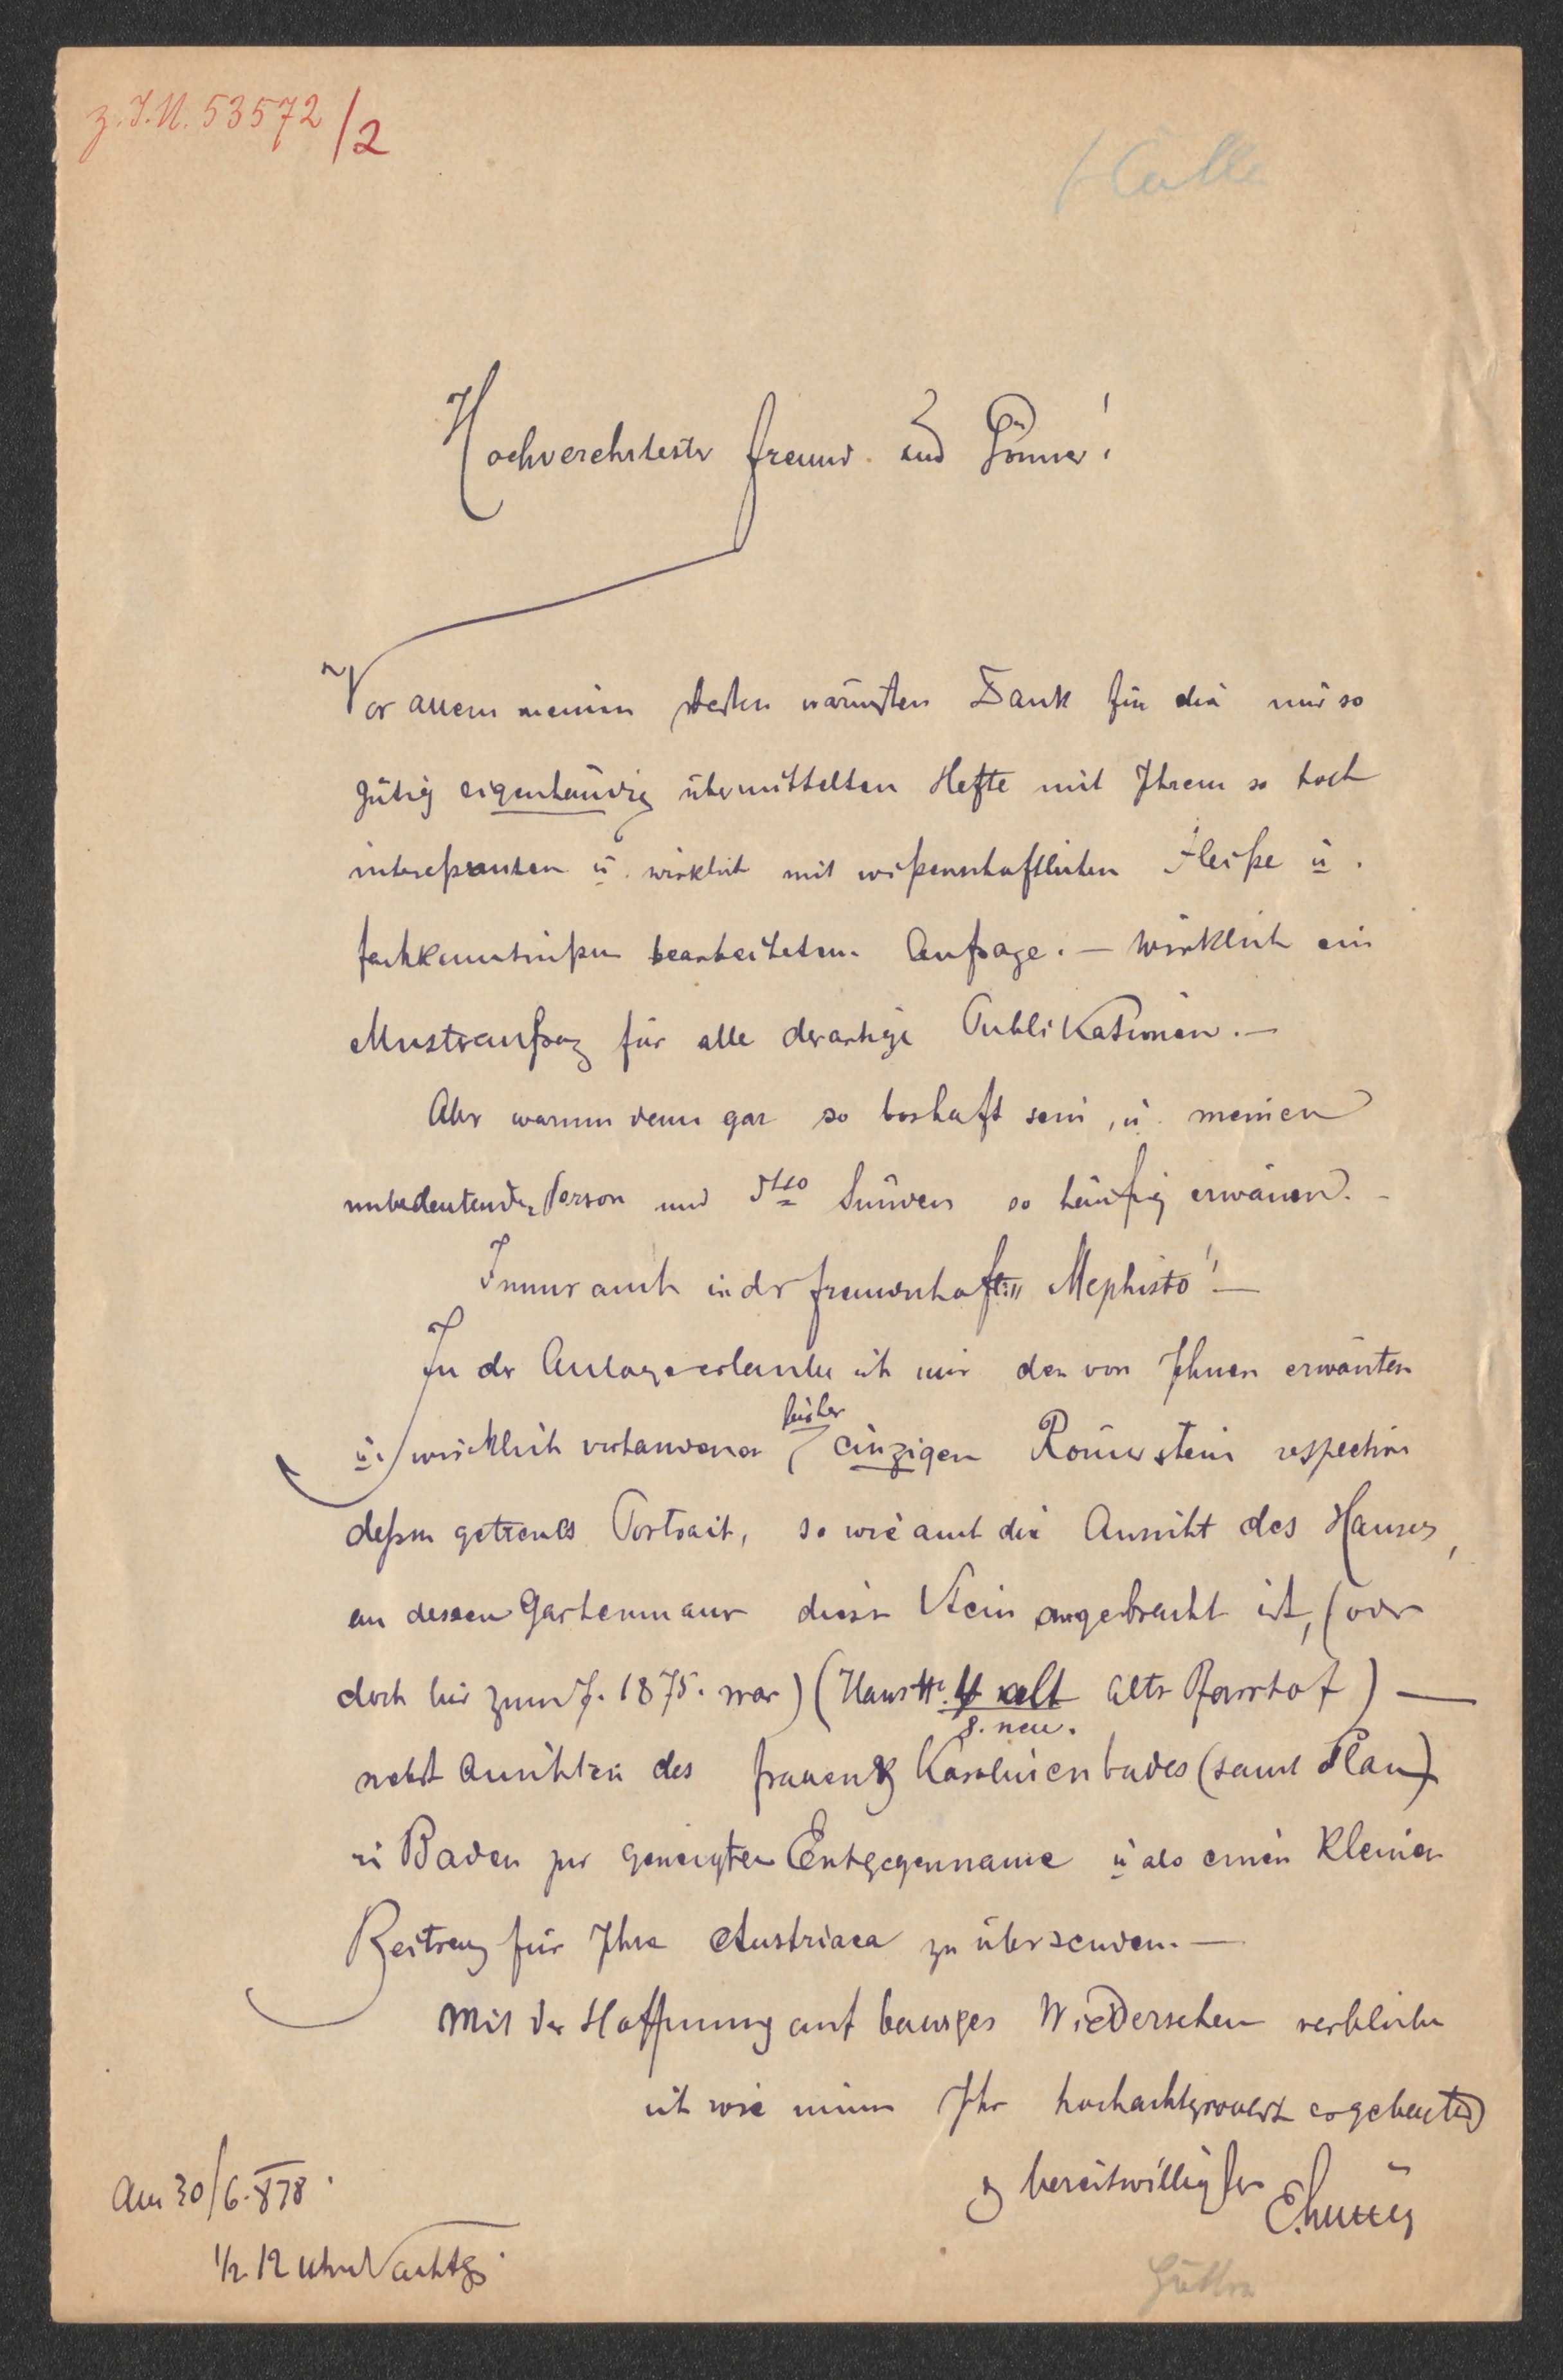 z. I. N. 53572/2
Hochverehrtester Freund und Gönner!
Vor allem meinen besten wärmsten Dank für die mir so
gütig eigenhändig übermittelten Hefte mit Ihrem so hoch
intereßanten u. wirklich mit wißenschaftlichen Fleiße u.
Fachkenntnißen bearbeiteten Aufsaze. — Wirklich ein
Musteraufsaz für alle derartige Publikationen. —
Aber warum denn gar so boshaft sein, u. meinen
unbedeutender Person und dtto Sünden so häufig erwänen. —
Immer auch in der Freundschaft Mephisto! —
In der Anlage erlaube ich mir den von Ihnen erwänten
u. wirklich vorhandenen bisher einzigen Römerstein respective
deßen getreues Portrait, so wie auch die Ansicht des Hauses,
an dessen Gartenmauer dieser Stein angebracht ist, (oder
doch bis zum J. 1875. war) (Haus Nr. 4 alt alter Pfarrhof) —
8. neu.
nebst Ansichten des Frauen & Karolinenbades (samt Plan)
in Baden zur geneigten Entgegenname u als einen kleinen
Beitrag für Ihre Austriaca zu übersenden. —
Mit der Hoffnung auf baldiges Wiedersehen verbleibe
ich wie immer Ihr hochachtungsvollst ergebenster
& bereitwilligster
Am 30/6. 878.
1/2 12 Uhr Nachts.